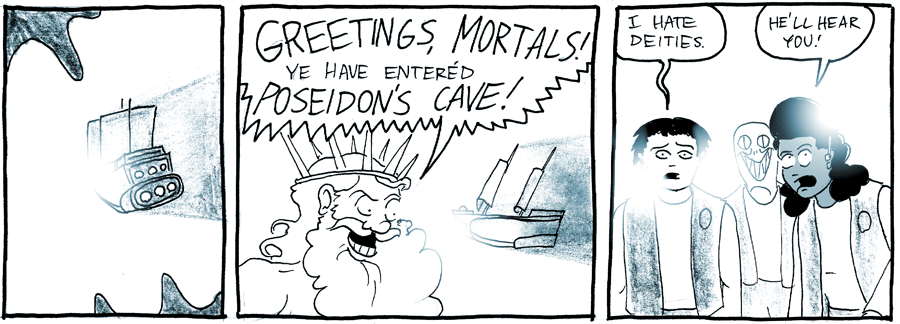 GREETINGS, MORTALS!
YE HAVE ENTERÉD
POSEIDON'S CAVE!
I HATE
DEITIES.
HE'LL HEAR
YOU!